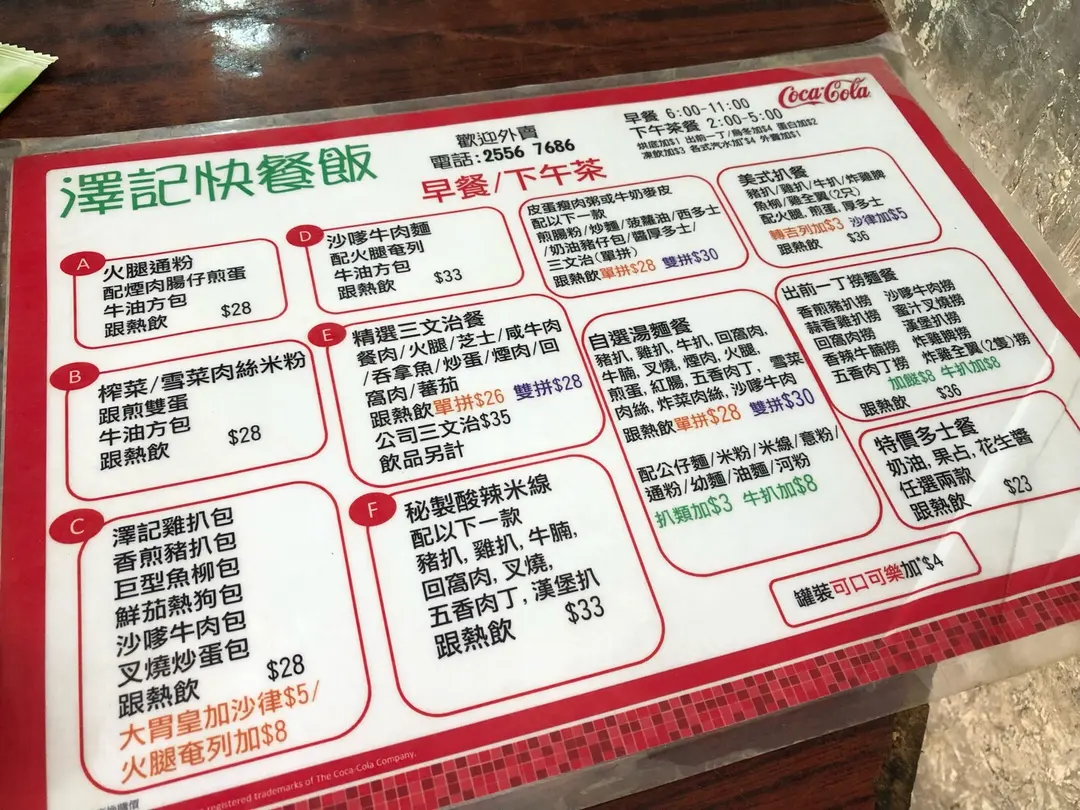 澤記快餐飯
歡迎外賣
電話:2556 7686
早餐/下午茶
早餐 6:00-11:00
下午茶餐 2:00-5:00
烘底加$1 出前一丁/烏冬加$4 蛋白加$2
凍飲加$3 各式汽水加$4 外賣加$1
Coca-Cola
A
火腿通粉
配煙肉腸仔煎蛋
牛油方包
跟熱飲 $28
B
榨菜/雪菜肉絲米粉
跟煎雙蛋
牛油方包
跟熱飲 $28
C
澤記雞扒包
香煎豬扒包
巨型魚柳包
鮮茄熱狗包
沙嗲牛肉包
叉燒炒蛋包
跟熱飲 $28
大胃皇加沙律$5/
火腿奄列加$8
D
沙嗲牛肉麵
配火腿奄列
牛油方包
跟熱飲 $33
E
精選三文治餐
餐肉/火腿/芝士/咸牛肉
/吞拿魚/炒蛋/煙肉/回
窩肉/蕃茄
跟熱飲單拼$26 雙拼$28
公司三文治$35
飲品另計
F
秘製酸辣米線
配以下一款
豬扒, 雞扒, 牛腩,
回窩肉, 叉燒,
五香肉丁, 漢堡扒
跟熱飲 $33
皮蛋瘦肉粥或牛奶麥皮
配以下一款
煎腸粉/炒麵/菠蘿油/西多士
/奶油豬仔包/醬厚多士/
三文治(單拼)
跟熱飲單拼$28 雙拼$30
自選湯麵餐
豬扒, 雞扒, 牛扒, 回窩肉,
牛腩, 叉燒, 煙肉, 火腿,
煎蛋, 紅腸, 五香肉丁, 雪菜
肉絲, 炸菜肉絲, 沙嗲牛肉
跟熱飲單拼$28 雙拼$30
配公仔麵/米粉/米線/意粉/
通粉/幼麵/油麵/河粉
扒類加$3 牛扒加$8
美式扒餐
豬扒/雞扒/牛扒/炸雞髀
魚柳/雞全翼(2只)
配火腿, 煎蛋, 厚多士
轉吉列加$3 沙律加$5
跟熱飲 $36
出前一丁撈麵餐
香煎豬扒撈 沙嗲牛肉撈
蒜香雞扒撈 蜜汁叉燒撈
回窩肉撈 漢堡扒撈
香辣牛腩撈 炸雞髀撈
五香肉丁撈 炸雞全翼(2隻)撈
加餸$8 牛扒加$8
跟熱飲 $36
特價多士餐
奶油, 果占, 花生醬
任選兩款
跟熱飲 $23
罐裝可口可樂加*$4
registered trademarks of The Coca-Cola Company.